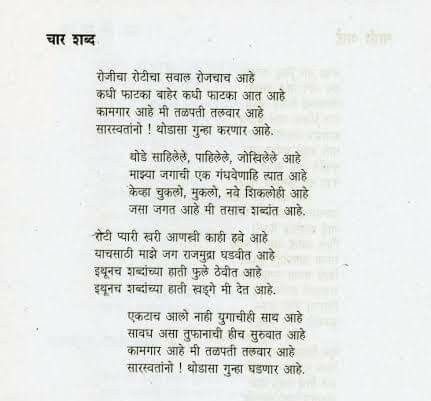 चार शब्द
रोजीचा रोटीचा सवाल रोजचाच आहे
कधी फाटका बाहेर कधी फाटका आत आहे
कामगार आहे मी तळपती तलवार आहे
सारस्वतांनो ! थोडासा गुन्हा करणार आहे.
थोडे साहिलेले, पाहिलेले, जोखिलेले आहे
माझ्या जगाची एक गंधवेणाहि त्यात आहे
केव्हा चुकलो, मुकलो, नवे शिकलोही आहे
जसा जगत आहे मी तसाच शब्दांत आहे.
रोटी प्यारी खरी आणखी काही हवे आहे
याचसाठी माझे जग राजमुद्रा घडवीत आहे
इथूनच शब्दांच्या हाती फुले ठेवीत आहे
इथूनच शब्दांच्या हाती खड्गे मी देत आहे.
एकटाच आलो नाही युगाचीही साथ आहे
सावध असा तुफानाची हीच सुरुवात आहे
कामगार आहे मी तळपती तलवार आहे
सारस्वतांनो ! थोडासा गुन्हा घडणार आहे.